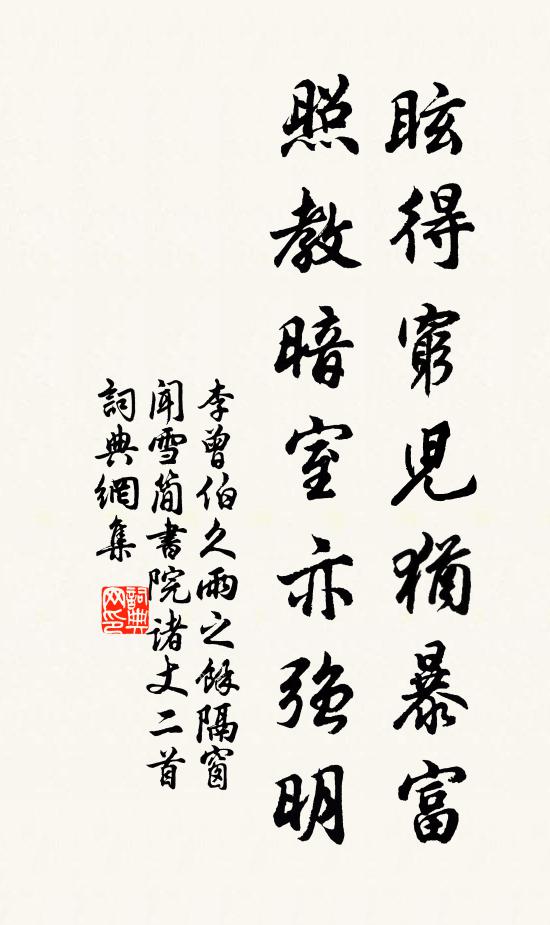 眩得窮兒猶暴富
照教暗室亦強明
李曾伯久雨之餘隔窗
聞雪簡書院諸丈二首
詞典網集
詞典网印